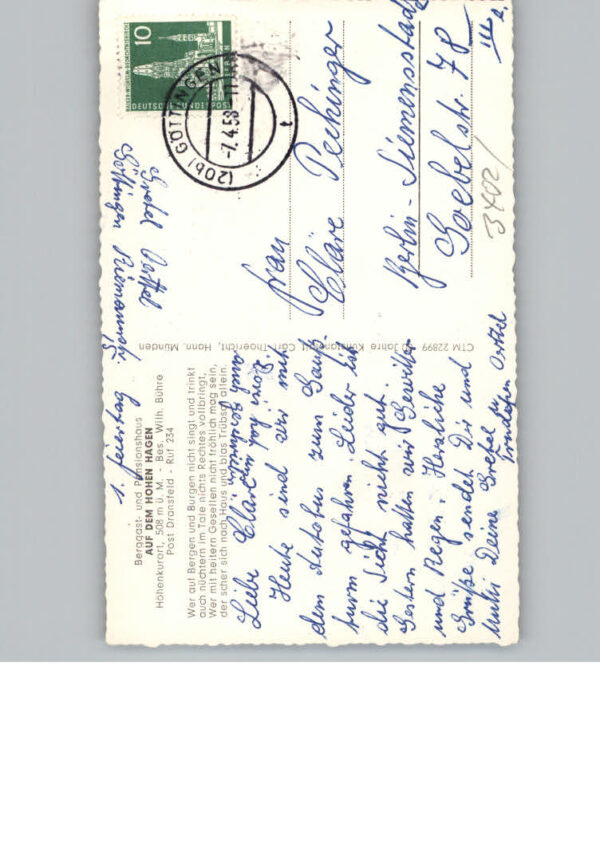 Berggast- und Pensionshaus
AUF DEM HOHEN HAGEN
Höhenkurort, 508 m ü. M. - Bes. Wilh. Bühre
Post Dransfeld - Ruf 234
Wer auf Bergen und Burgen nicht singt und trinkt
auch nüchtern im Tale nichts Rechtes vollbringt,
Wer mit heitern Gesellen nicht fröhlich mag sein,
der scher sich nach Haus und blas Trübsal allein.
1. Feiertag
Liebe Cläre
Heute sind wir mit
dem Autobus zum Gauß-
turm gefahren. Leider ist
die Sicht nicht gut.
Gestern hatten wir Gewitter
und Regen. Herzliche
Grüße senden Dir und
Mutti Deine Gretel
CTM 22899
Carl Thoericht, Hann. Münden
10
DEUTSCHE BUNDESPOST
(20b) GÖTTINGEN
-7.4.58
t
Gretel
Göttingen
Frau
Cläre Pechinger
Berlin-Siemensstadt
Goebelstr. 78
3402/